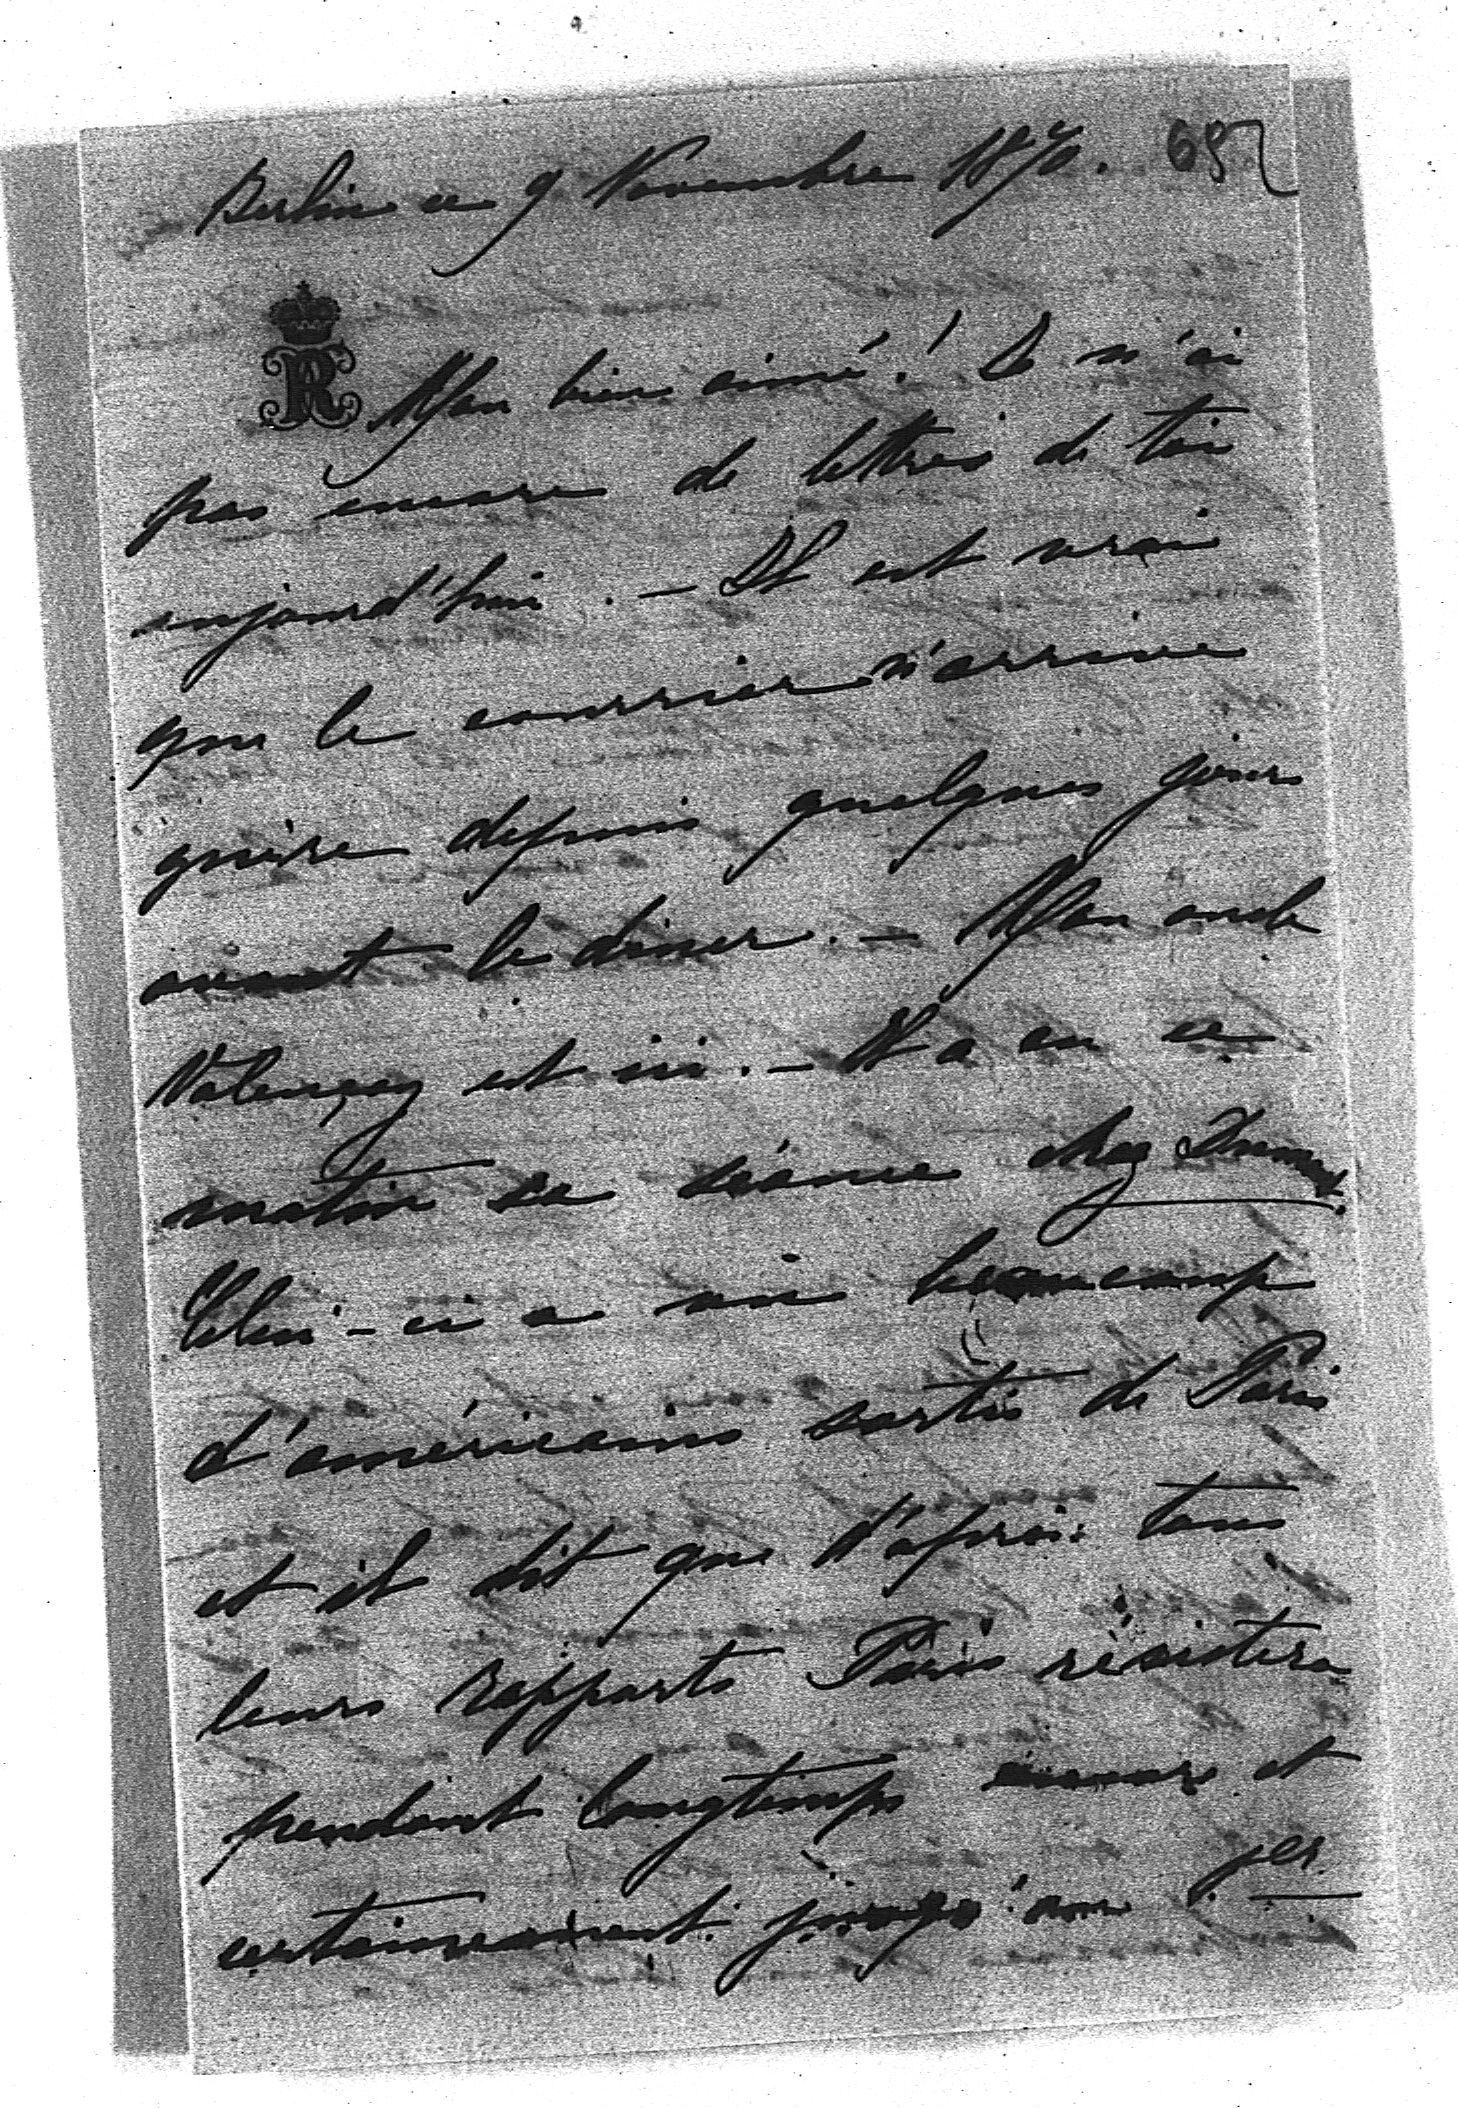 Berlin ce 9 Novembre 1870.
R Mon bien aimé! Je n'ai
pas encore de lettres de toi
aujourd'hui. – Il est vrai
que le courrier n'arrive
guère depuis quelques jours
avant le diner. – Mon oncle
Valençay est ici. – Il a eu ce
matin sa séance chez
Celui-ci a vu beaucoup
d'américains sortis de Paris
et il dit que d'après tous
leurs rapports Paris résistera
pendant longtemps encore et
certainement jusqu'au 1er